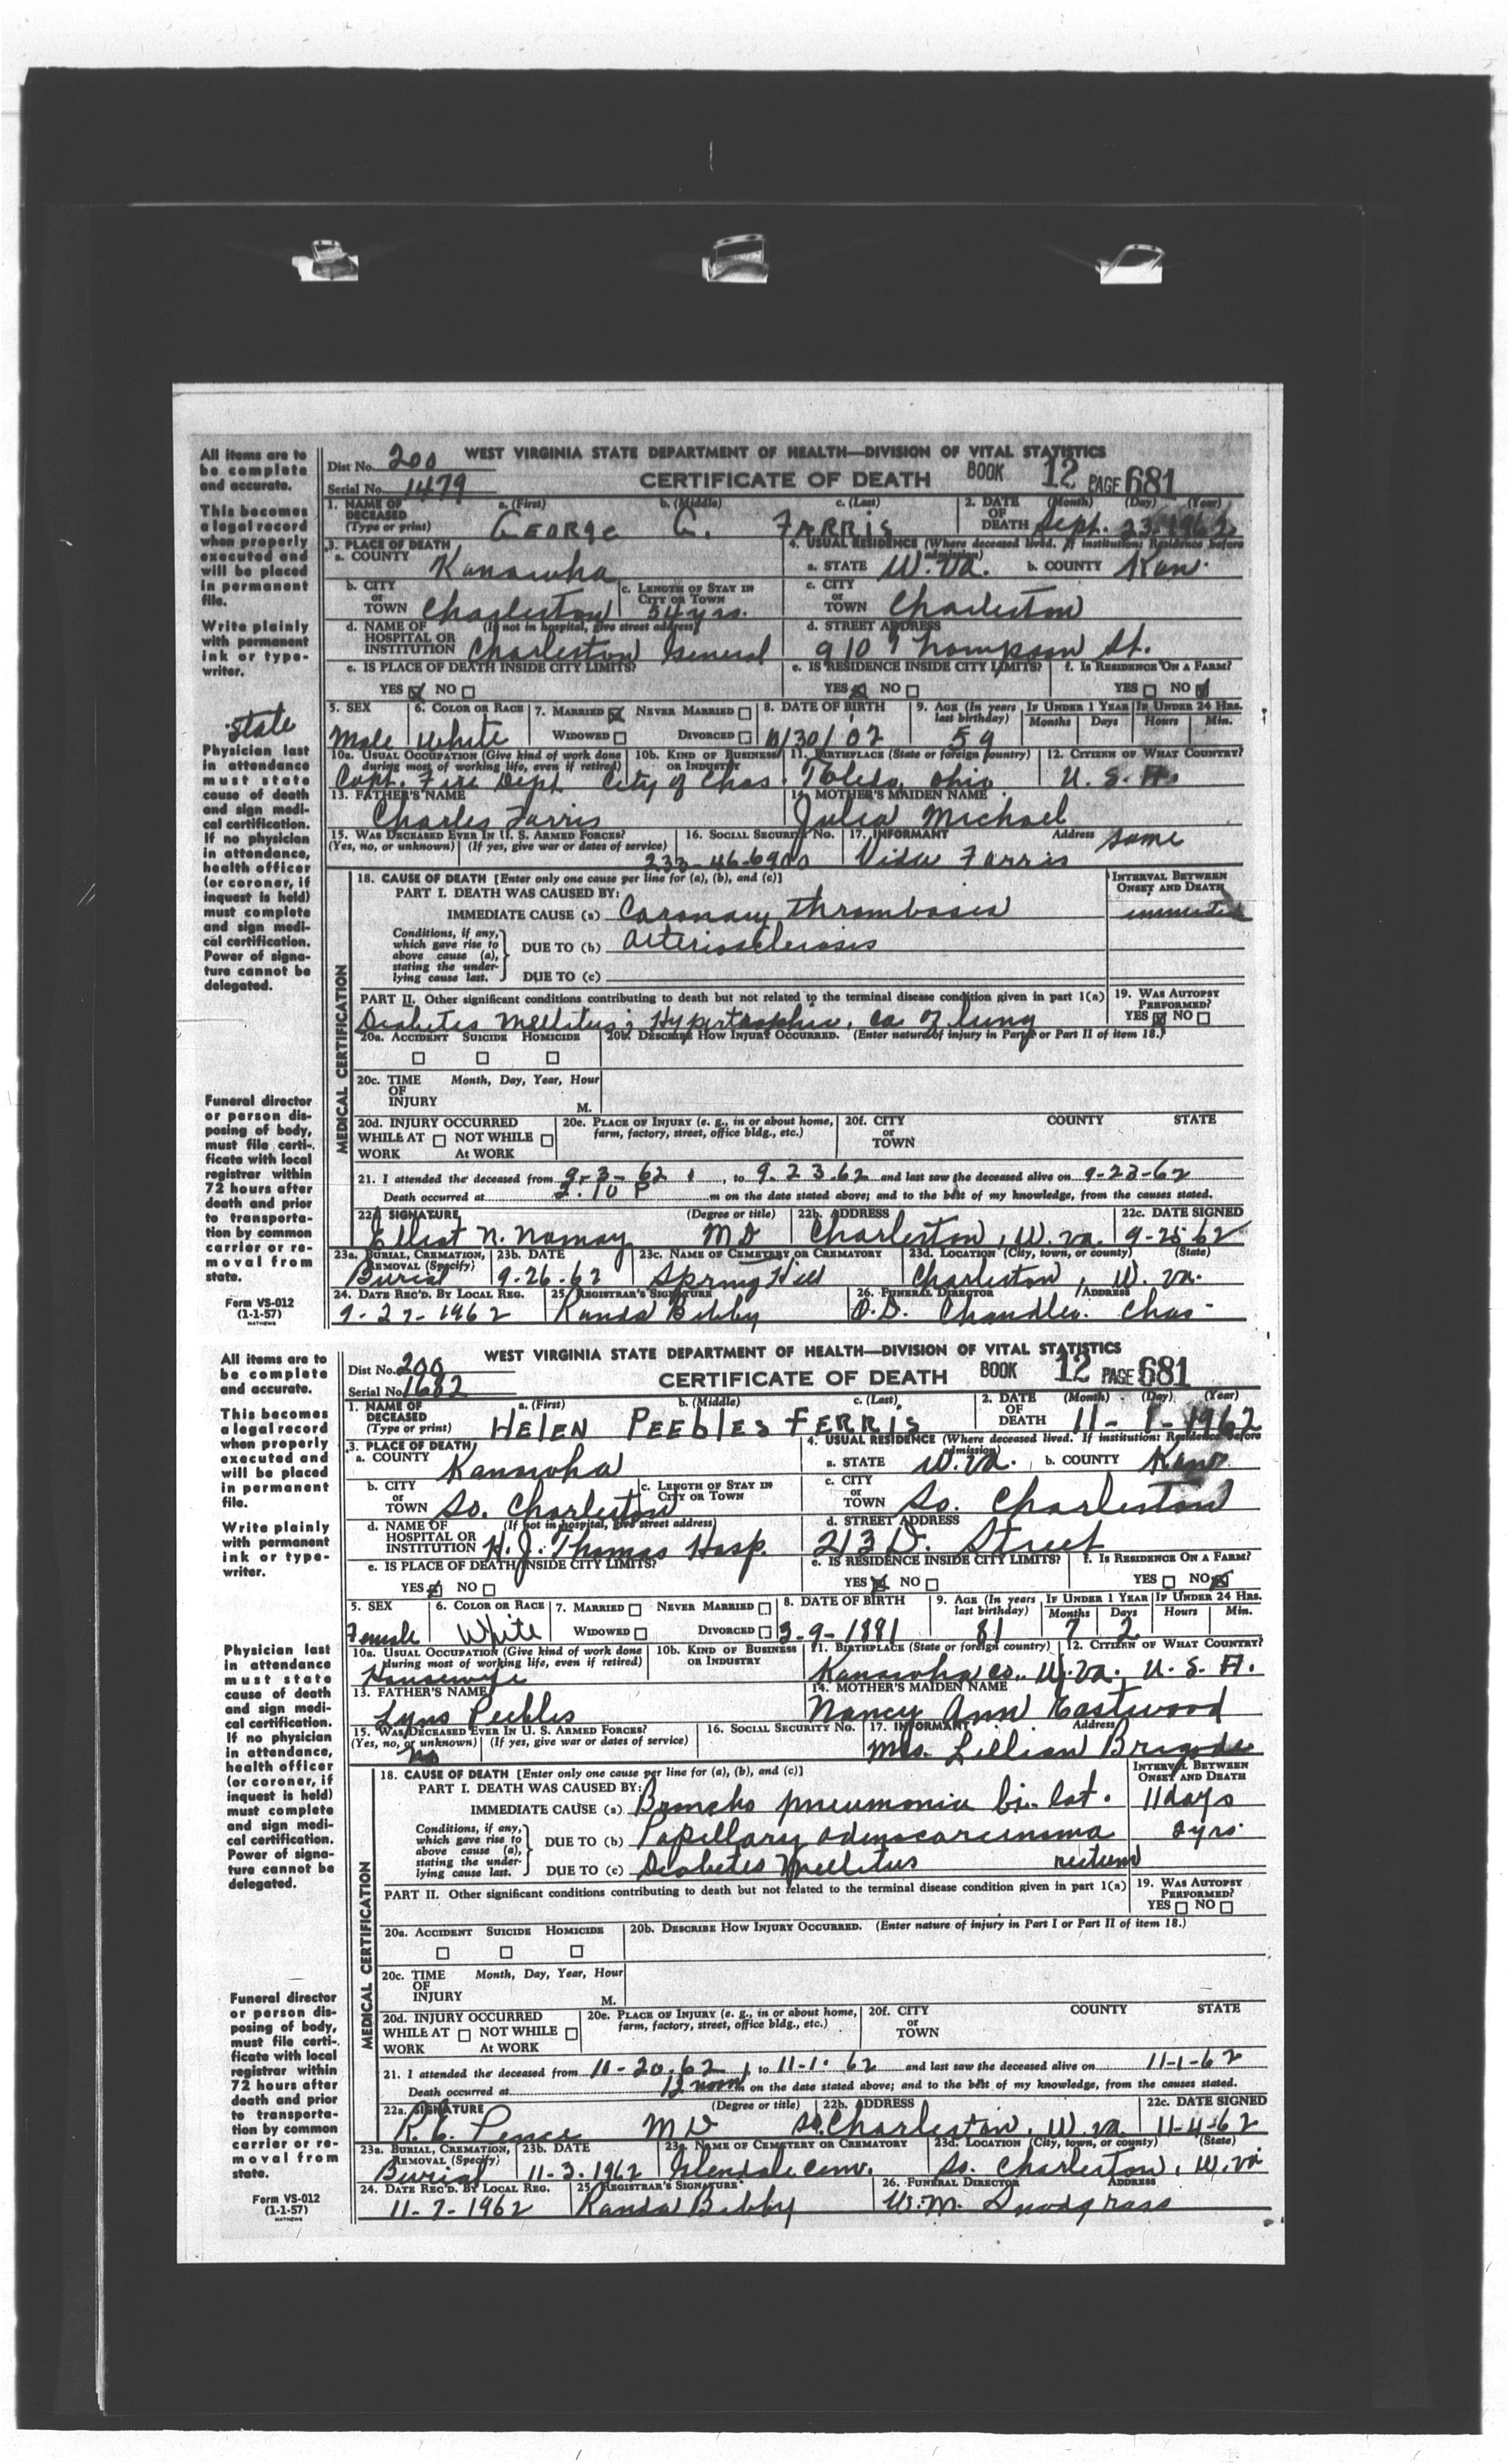 All items are to
be complete
and accurate.
This becomes
a legal record
when properly
executed and
will be placed
in permanent
file.
Write plainly
with permanent
ink or type-
writer.
State
Physician last
in attendance
must state
cause of death
and sign medi-
cal certification.
If no physician
in attendance,
health officer
(or coroner, if
inquest is held)
must complete
and sign medi-
cal certification.
Power of signa-
ture cannot be
delegated.
Funeral director
or person dis-
posing of body,
must file certi-
ficate with local
registrar within
72 hours after
death and prior
to transporta-
tion by common
carrier or re-
moval from
state.
Form VS-012
(1-1-57)
MATHEWS
WEST VIRGINIA STATE DEPARTMENT OF HEALTH—DIVISION OF VITAL STATISTICS
Dist No. 200
Serial No. 1479
CERTIFICATE OF DEATH BOOK 12 PAGE 681
1. NAME OF DECEASED (Type or print) a. (First) b. (Middle) c. (Last) 2. DATE OF DEATH (Month) (Day) (Year)
GEORGE G. FARRIS Sept. 23, 1962
3. PLACE OF DEATH 4. USUAL RESIDENCE (Where deceased lived. If institution: Residence before admission)
a. COUNTY Kanawha a. STATE W. Va. b. COUNTY Kan.
b. CITY or TOWN Charleston c. LENGTH OF STAY IN CITY OR TOWN 54 yrs. c. CITY or TOWN Charleston
d. NAME OF HOSPITAL OR INSTITUTION (If not in hospital, give street address) Charleston General d. STREET ADDRESS 910 Thompson St.
e. IS PLACE OF DEATH INSIDE CITY LIMITS? e. IS RESIDENCE INSIDE CITY LIMITS? f. IS RESIDENCE ON A FARM?
YES NO YES NO YES NO
5. SEX 6. COLOR OR RACE 7. MARRIED NEVER MARRIED 8. DATE OF BIRTH 9. AGE (In years last birthday) IF UNDER 1 YEAR IF UNDER 24 HRS.
WIDOWED DIVORCED Months Days Hours Min.
Male White /30/02 59
10a. USUAL OCCUPATION (Give kind of work done during most of working life, even if retired) 10b. KIND OF BUSINESS OR INDUSTRY 11. BIRTHPLACE (State or foreign country) 12. CITIZEN OF WHAT COUNTRY?
Capt. Fire Dept City of Chas. Toledo, Ohio U. S. A.
13. FATHER'S NAME 14. MOTHER'S MAIDEN NAME
Charles Farris Julia Michael
15. WAS DECEASED EVER IN U. S. ARMED FORCES? 16. SOCIAL SECURITY NO. 17. INFORMANT Address
(Yes, no, or unknown) (If yes, give war or dates of service) 233-46- Vida Farris same
MEDICAL CERTIFICATION
18. CAUSE OF DEATH [Enter only one cause per line for (a), (b), and (c)] INTERVAL BETWEEN ONSET AND DEATH
PART I. DEATH WAS CAUSED BY:
IMMEDIATE CAUSE (a) Coronary thrombosis
Conditions, if any, which gave rise to above cause (a), stating the underlying cause last. DUE TO (b) arteriosclerosis
DUE TO (c)
PART II. Other significant conditions contributing to death but not related to the terminal disease condition given in part 1(a) 19. WAS AUTOPSY PERFORMED?
Diabetes Mellitus; Hypertrophic, ca of lung YES NO
20a. ACCIDENT SUICIDE HOMICIDE 20b. DESCRIBE HOW INJURY OCCURRED. (Enter nature of injury in Part I or Part II of item 18.)
20c. TIME OF INJURY Month, Day, Year, Hour M.
20d. INJURY OCCURRED 20e. PLACE OF INJURY (e. g., in or about home, farm, factory, street, office bldg., etc.) 20f. CITY or TOWN COUNTY STATE
WHILE AT WORK NOT WHILE At WORK
21. I attended the deceased from 9-3-62, to 9.23.62 and last saw the deceased alive on 9-23-62
Death occurred at 2:10 P m on the date stated above; and to the best of my knowledge, from the causes stated.
22a. SIGNATURE (Degree or title) 22b. ADDRESS 22c. DATE SIGNED
Elliot N. Namay MD Charleston, W. Va. 9-25-62
23a. BURIAL, CREMATION, REMOVAL (Specify) 23b. DATE 23c. NAME OF CEMETERY OR CREMATORY 23d. LOCATION (City, town, or county) (State)
Burial 9-26-62 Spring Hill Charleston, W. Va.
24. DATE REC'D. BY LOCAL REG. 25. REGISTRAR'S SIGNATURE 26. FUNERAL DIRECTOR ADDRESS
9-27-1962 Randa Bibby O.D. Chandler. Chas-
All items are to
be complete
and accurate.
This becomes
a legal record
when properly
executed and
will be placed
in permanent
file.
Write plainly
with permanent
ink or type-
writer.
Physician last
in attendance
must state
cause of death
and sign medi-
cal certification.
If no physician
in attendance,
health officer
(or coroner, if
inquest is held)
must complete
and sign medi-
cal certification.
Power of signa-
ture cannot be
delegated.
Funeral director
or person dis-
posing of body,
must file certi-
ficate with local
registrar within
72 hours after
death and prior
to transporta-
tion by common
carrier or re-
moval from
state.
Form VS-012
(1-1-57)
MATHEWS
WEST VIRGINIA STATE DEPARTMENT OF HEALTH—DIVISION OF VITAL STATISTICS
Dist No. 200
Serial No. 1682
CERTIFICATE OF DEATH BOOK 12 PAGE 681
1. NAME OF DECEASED (Type or print) a. (First) b. (Middle) c. (Last) 2. DATE OF DEATH (Month) (Day) (Year)
HELEN PEEBLES FERRIS 11-1-1962
3. PLACE OF DEATH 4. USUAL RESIDENCE (Where deceased lived. If institution: Residence before admission)
a. COUNTY Kanawha a. STATE W. Va. b. COUNTY Kan.
b. CITY or TOWN So. Charleston c. LENGTH OF STAY IN CITY OR TOWN c. CITY or TOWN So. Charleston
d. NAME OF HOSPITAL OR INSTITUTION (If not in hospital, give street address) H. J. Thomas Hosp. d. STREET ADDRESS 213 D. Street
e. IS PLACE OF DEATH INSIDE CITY LIMITS? e. IS RESIDENCE INSIDE CITY LIMITS? f. IS RESIDENCE ON A FARM?
YES NO YES NO YES NO
5. SEX 6. COLOR OR RACE 7. MARRIED NEVER MARRIED 8. DATE OF BIRTH 9. AGE (In years last birthday) IF UNDER 1 YEAR IF UNDER 24 HRS.
WIDOWED DIVORCED Months Days Hours Min.
Female White 3-9-1881 81 7 2
10a. USUAL OCCUPATION (Give kind of work done during most of working life, even if retired) 10b. KIND OF BUSINESS OR INDUSTRY 11. BIRTHPLACE (State or foreign country) 12. CITIZEN OF WHAT COUNTRY?
Housewife Kanawha co. W. Va. U. S. A.
13. FATHER'S NAME 14. MOTHER'S MAIDEN NAME
Lyns Peebles Nancy Ann Eastwood
15. WAS DECEASED EVER IN U. S. ARMED FORCES? 16. SOCIAL SECURITY NO. 17. INFORMANT Address
(Yes, no, or unknown) (If yes, give war or dates of service) no Mrs. Lillian
MEDICAL CERTIFICATION
18. CAUSE OF DEATH [Enter only one cause per line for (a), (b), and (c)] INTERVAL BETWEEN ONSET AND DEATH
PART I. DEATH WAS CAUSED BY:
IMMEDIATE CAUSE (a) Broncho pneumonia bi-lat. 11 days
Conditions, if any, which gave rise to above cause (a), stating the underlying cause last. DUE TO (b) Papillary adenocarcinoma 2 yrs.
DUE TO (c) Diabetes Mellitus rectum
PART II. Other significant conditions contributing to death but not related to the terminal disease condition given in part 1(a) 19. WAS AUTOPSY PERFORMED?
YES NO
20a. ACCIDENT SUICIDE HOMICIDE 20b. DESCRIBE HOW INJURY OCCURRED. (Enter nature of injury in Part I or Part II of item 18.)
20c. TIME OF INJURY Month, Day, Year, Hour M.
20d. INJURY OCCURRED 20e. PLACE OF INJURY (e. g., in or about home, farm, factory, street, office bldg., etc.) 20f. CITY or TOWN COUNTY STATE
WHILE AT WORK NOT WHILE At WORK
21. I attended the deceased from 11-20.62, to 11-1.62 and last saw the deceased alive on 11-1-62
Death occurred at 12 noon m on the date stated above; and to the best of my knowledge, from the causes stated.
22a. SIGNATURE (Degree or title) 22b. ADDRESS 22c. DATE SIGNED
R. C. Pence MD So. Charleston, W. Va. 11-4-62
23a. BURIAL, CREMATION, REMOVAL (Specify) 23b. DATE 23c. NAME OF CEMETERY OR CREMATORY 23d. LOCATION (City, town, or county) (State)
Burial 11-3.1962 Glendale Cem. So. Charleston, W. Va
24. DATE REC'D. BY LOCAL REG. 25. REGISTRAR'S SIGNATURE 26. FUNERAL DIRECTOR ADDRESS
11-7-1962 Randa Bibby W. M. Snodgrass